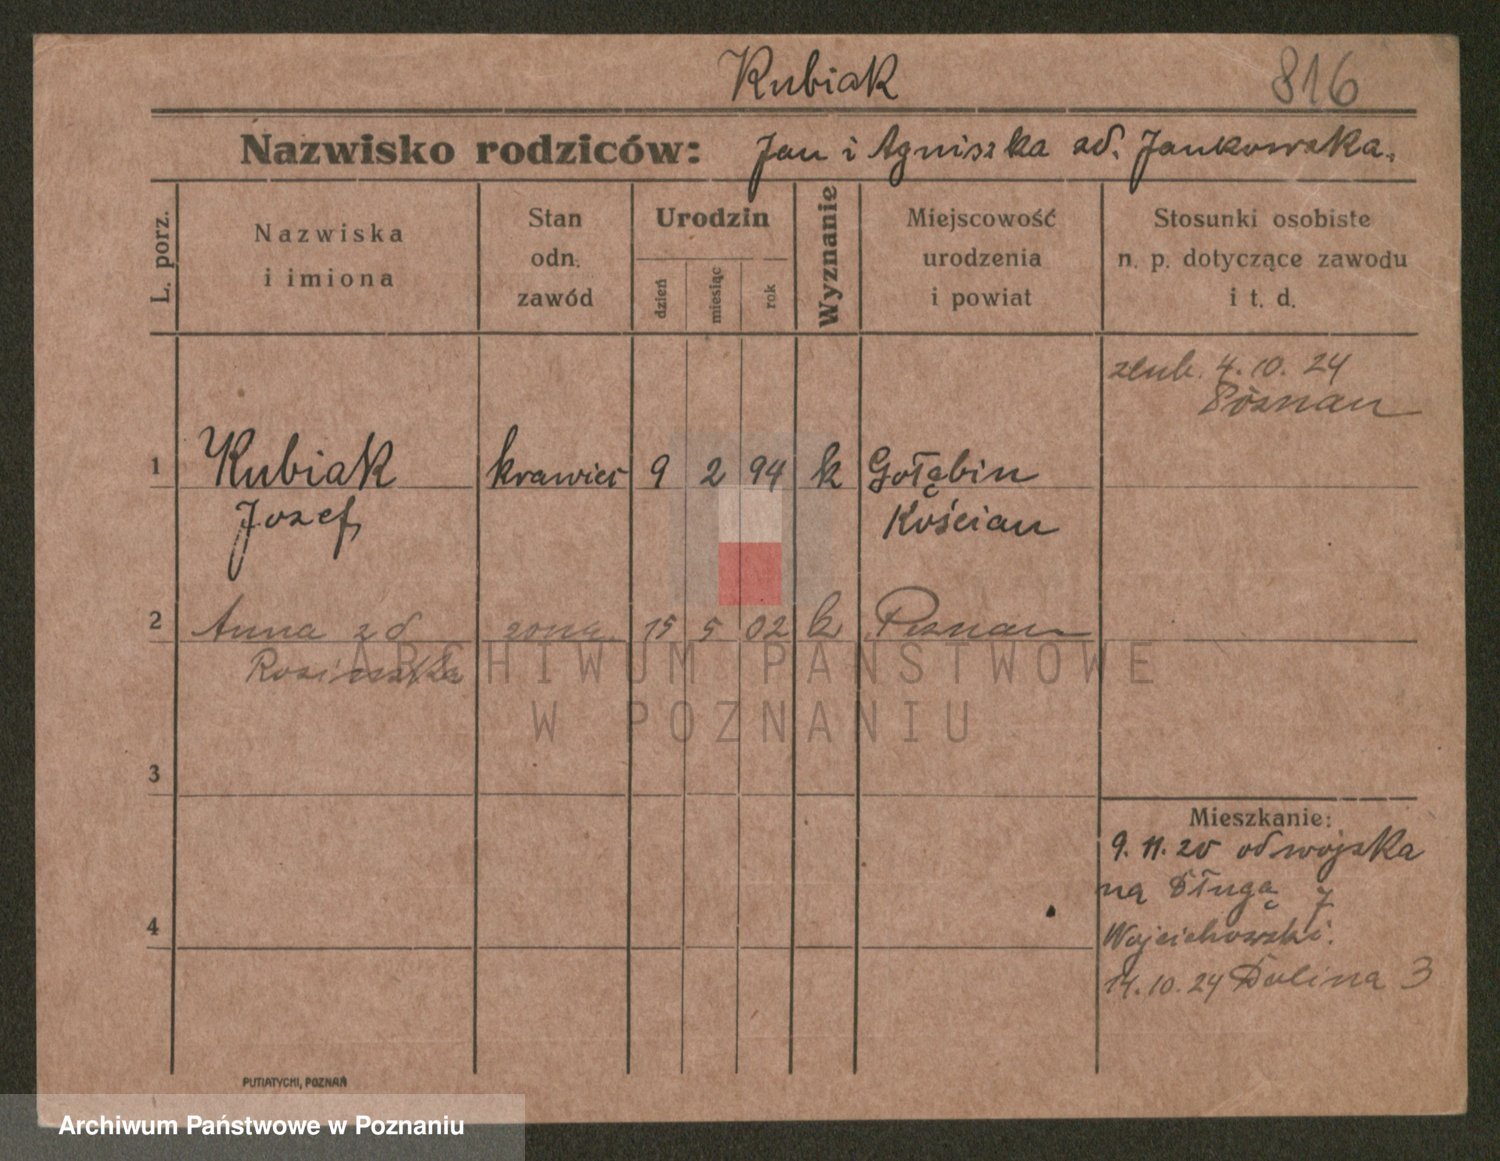 Kubiak 816
Nazwisko rodziców: Jan i Agniszka zd. Jankowska.
L. porz.
Nazwiska
i imiona
Stan
odn.
zawód
Urodzin
dzień
miesiąc
rok
Wyznanie
Miejscowość
urodzenia
i powiat
Stosunki osobiste
n. p. dotyczące zawodu
i t. d.
4. 10. 24
Poznan
1 Kubiak krawiec 9 2 94 k Gołębin
Jozef Kościan
2 Anna zd zona 15 5 02 k Poznan
ARCHIWUM PAŃSTWOWE
W POZNANIU
3
Mieszkanie:
9. 11. 20 od wojska
na Długą 7
4 Wojciechowski.
14. 10. 24 Dolina 3
PUTIATYCKI, POZNAŃ
Archiwum Państwowe w Poznaniu